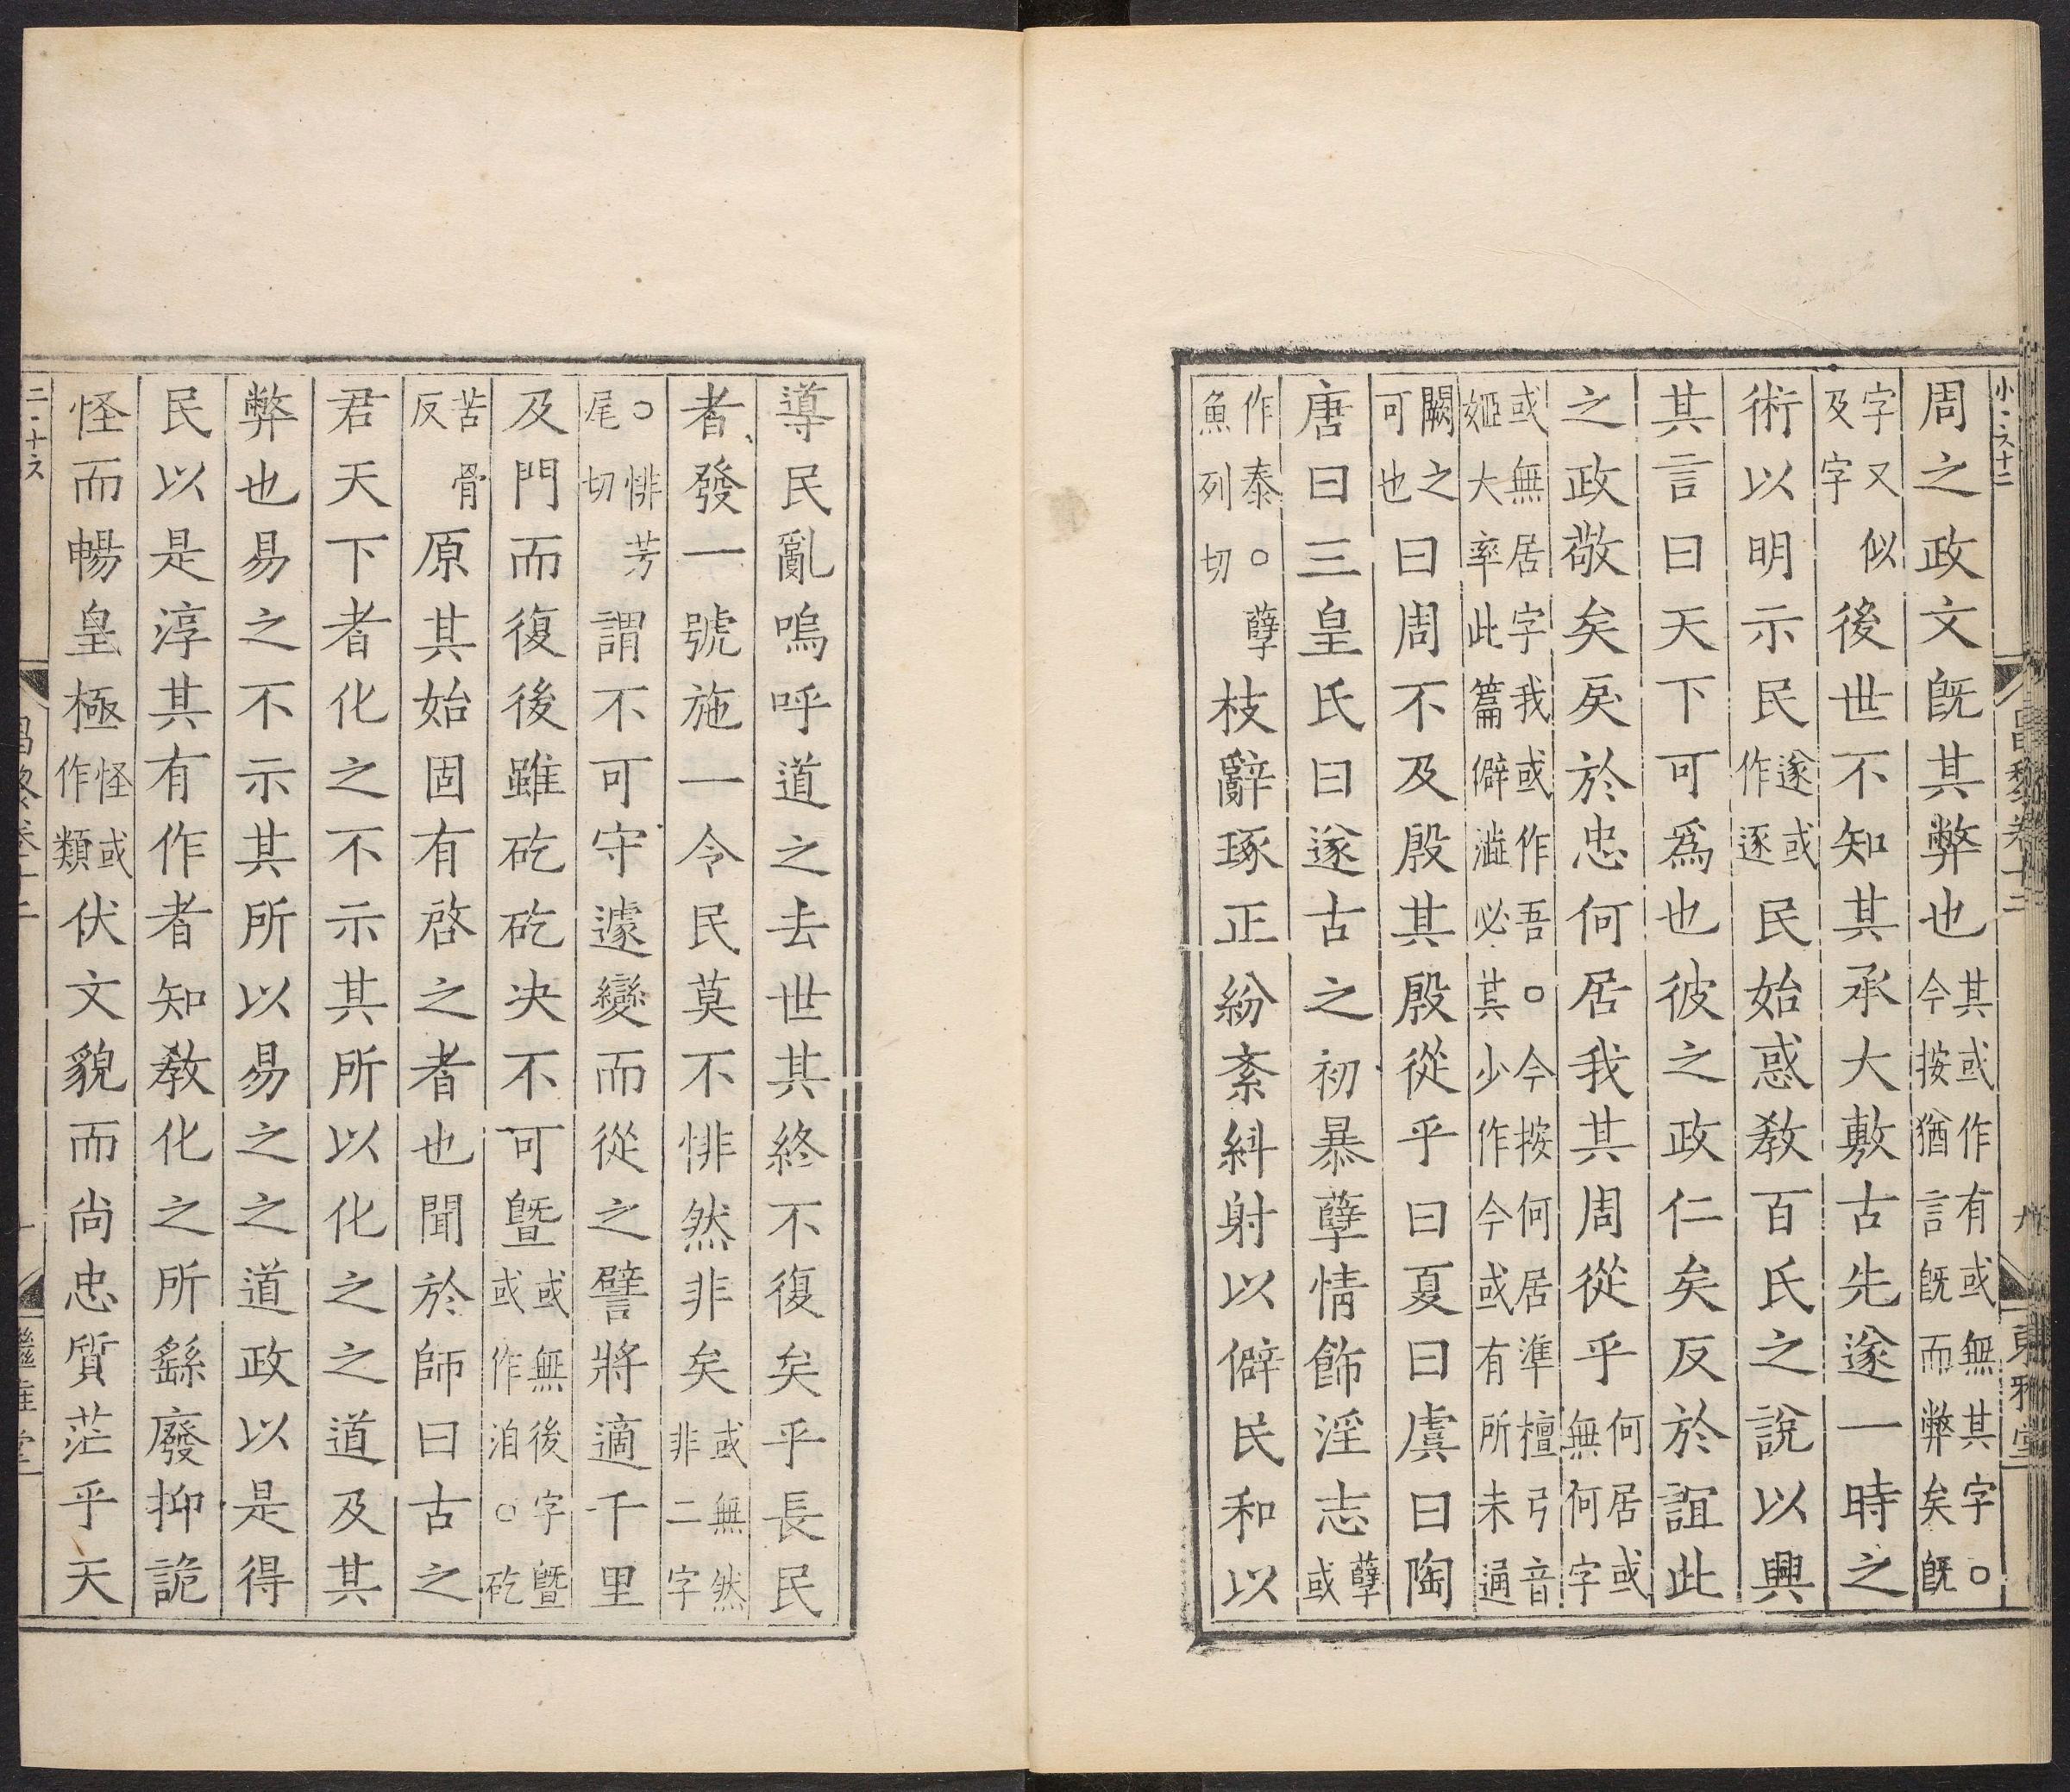 小六十二
昌黎卷十二 九 東雅堂
周之政文既其弊也其或作有或無其字○今按猶言既而弊矣既
字又似及字後世不知其承大敷古先遂一時之
術以明示民遂或作逐民始惑教百氏之說以興
其言曰天下可爲也彼之政仁矣反於誼此
之政敬矣戾於忠何居我其周從乎何居或無何字
或無居字我或作吾○今按何居準檀弓音姬大率此篇僻澁必其少作今或有所未通
闕之可也曰周不及殷其殷從乎曰夏曰虞曰陶
唐曰三皇氏曰遂古之初暴孽情飾淫志孽或
作泰○孽魚列切枝辭琢正紛紊糾射以僻民和以
導民亂嗚呼道之去世其終不復矣乎長民
者發一號施一令民莫不悱然非矣或無然非二字
○悱芳尾切謂不可守遽變而從之譬將適千里
及門而復後雖矻矻決不可曁或無後字曁或作洎○矻
苦骨反原其始固有啓之者也聞於師曰古之
君天下者化之不示其所以化之之道及其
弊也易之不示其所以易之之道政以是得
民以是淳其有作者知教化之所繇廢抑詭
怪而暢皇極怪或作類伏文貌而尚忠質茫乎天
二十六